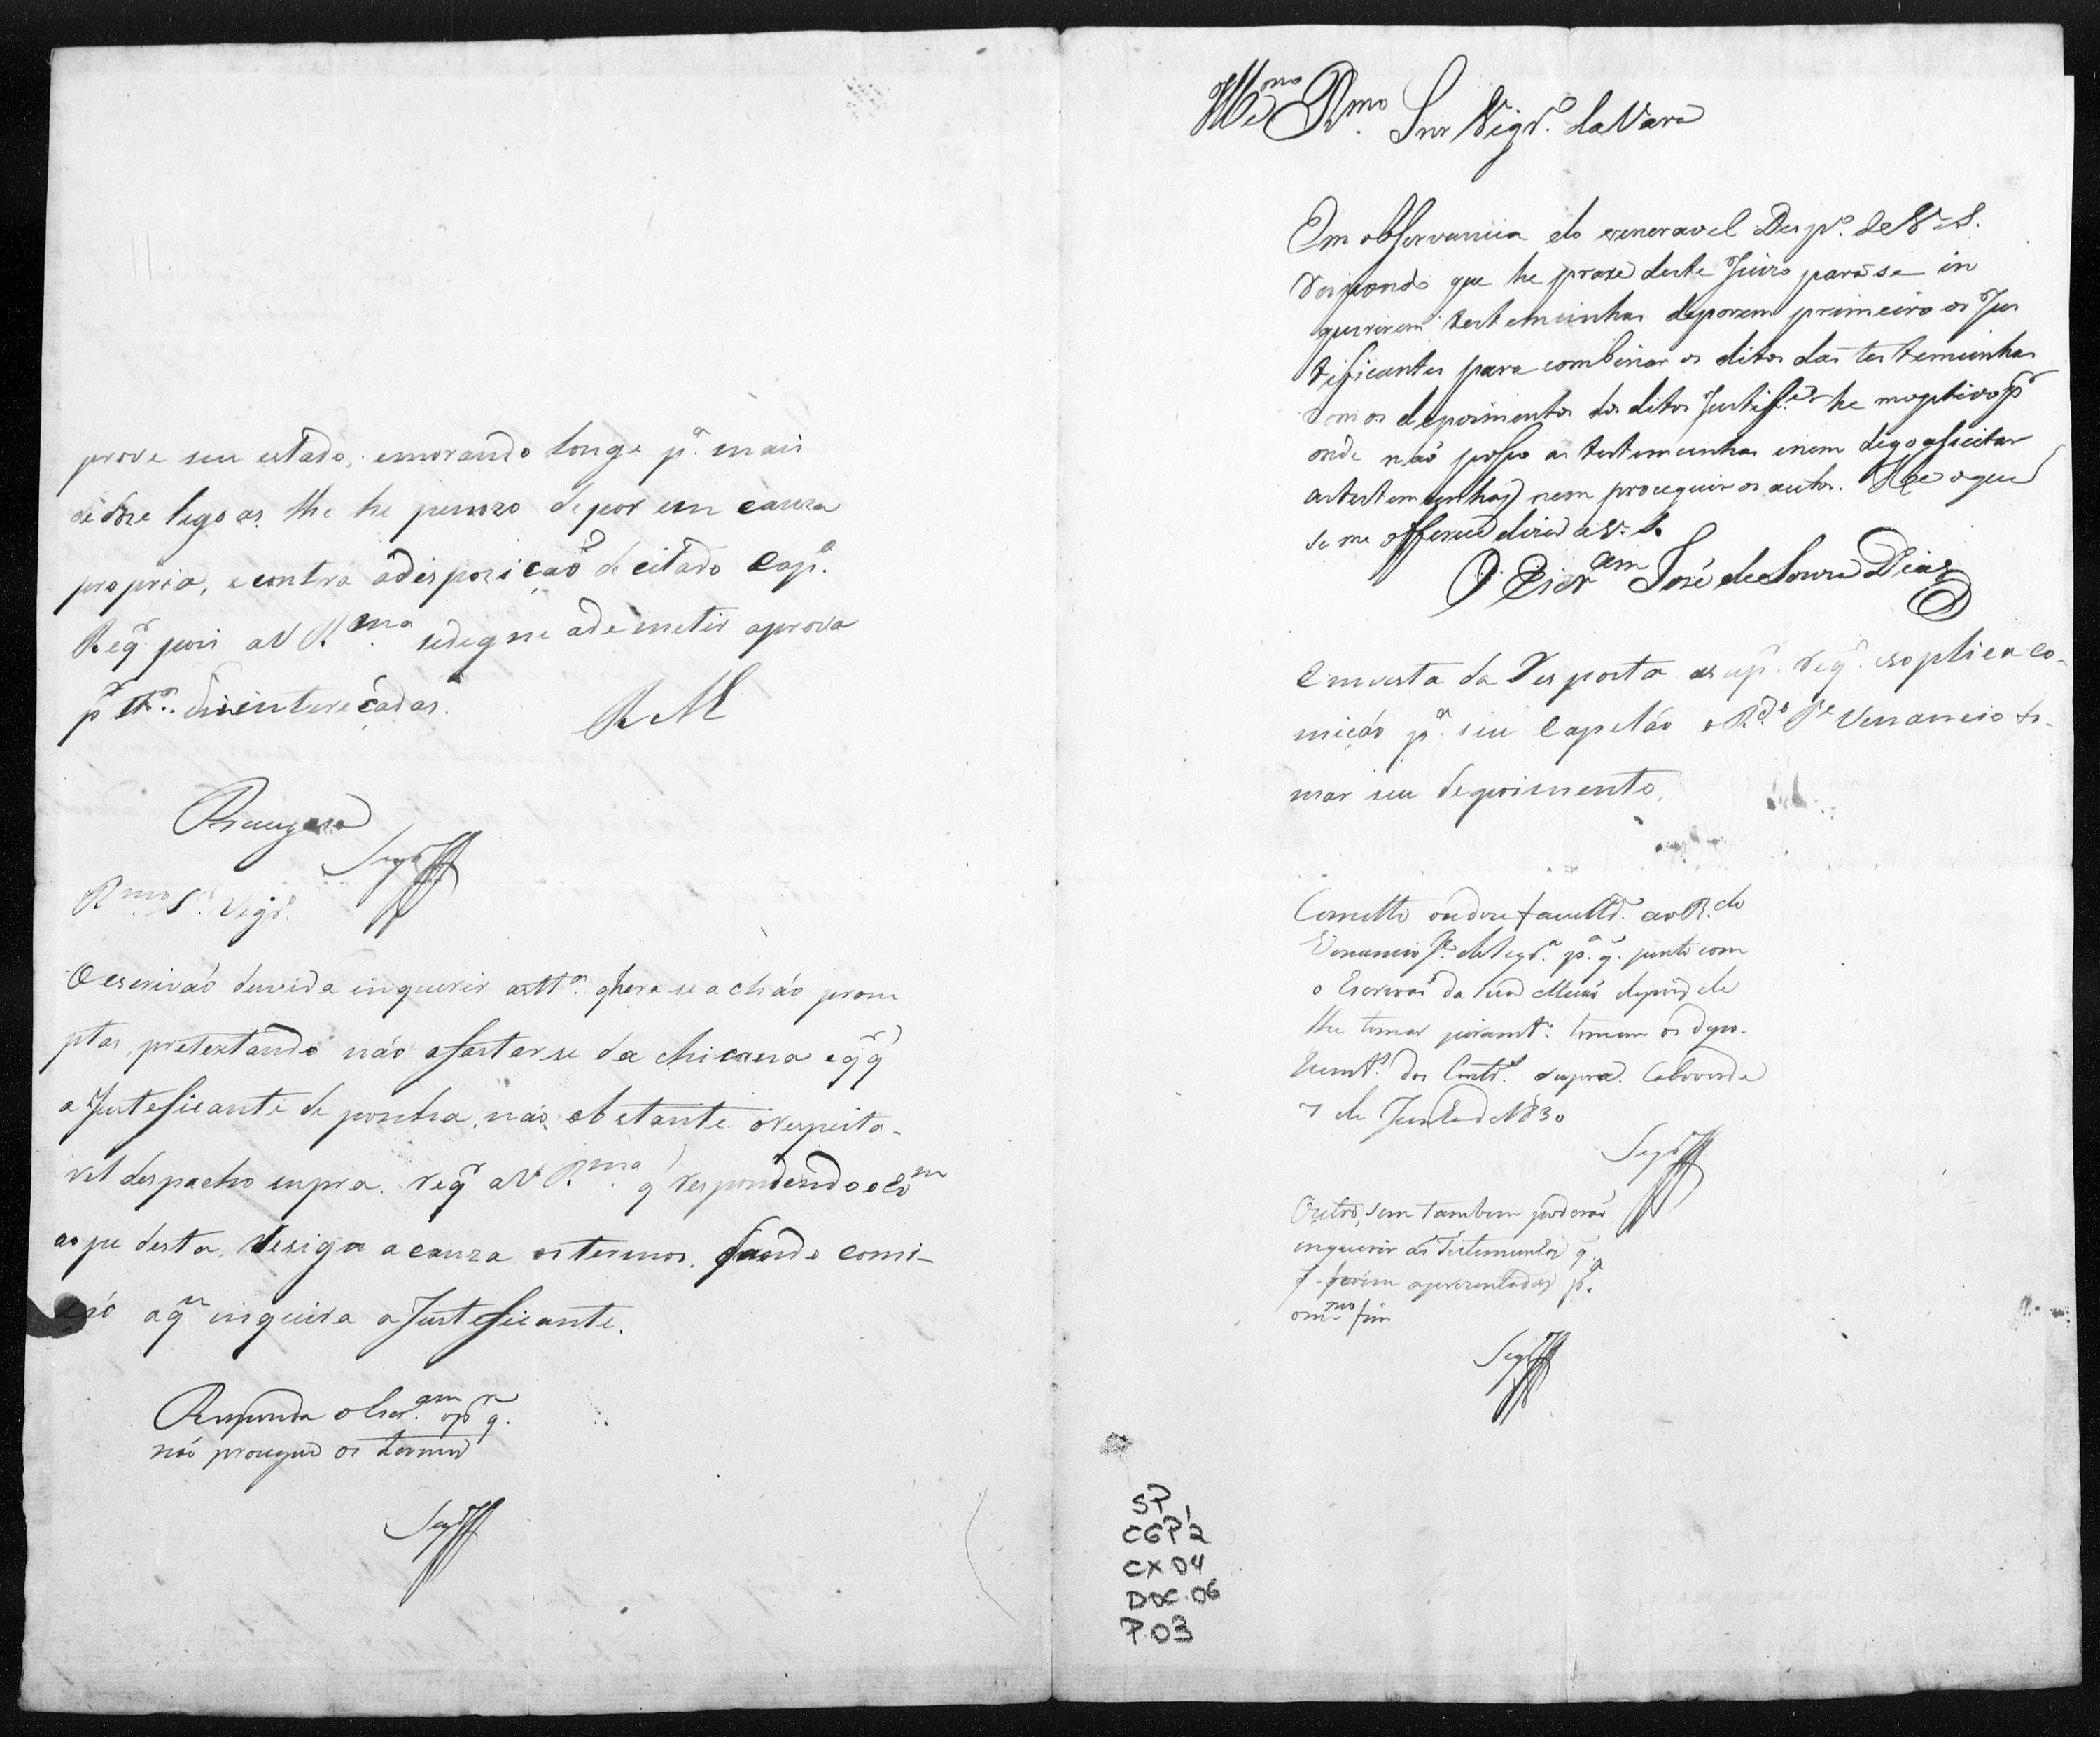 prove seu estado, emorando longe pª. mais
de doze legoas lhe he penozo depor em cauza
propria, e contra adisposição do citado Cap.º
Reqr. pois a V Rma. sedegne ademetir aprova
pr ttas. dizinterecadas.
R M
Prusiga
Segdº
Rmo Sr. Vigrº.
O escrivaó duvida inquerir asttªs. q hora se achão prom
ptas, pretextando não afastarse da chicana e qr q
a Justeficante deponha, não obstante orespeita-
vel despacho supra. reqr a V Rma. q respondendo o Esm
ao pe desta, desiga a cauza os termos, dando comi-
ção a qm inqueira a Justeficante.
Responda o Escram. o pr q.
não prosegue os termos
Segdº
Illmo Rmo. Snr Vigrº. da Vara
Em observancia do veneravel Despº. de V. S.
respondo que he praxe deste Juizo para se in
quirirem testemunhas deporem primeiro os Jus
tificantes para combinar os ditos das testemunhas
com os depoimentos dos ditos Justifes. he mogtivo pr
onde naõ posso as testemunhas enem digo asseitar
astestemunhas) nem proseguir os autos. He o que
se me offerece dizer a V. S.
O Escram José de Souza Dias
Emvista da Resposta a supe. reqr. e soplica co-
mição pª. seu Capelão o Rdo Pe Venancio to-
mar seu depoimento.
Cometto ou dou facultde. ao R.do
Venancio Je. de Segrª. pª. q. junto com
o Escrivaõ da sua Meza depois de
lhe tomar juramtº. tomem os depo-
himtºs. dos Contdºs. supra. Caboverde
7 de Junho de 1830
Segdº
Outro, sim tambem poderaõ
inquerir as Testemunhas q.
f. forem aprezentadas pª.
o mmo fim
Segdº
SP
CGP 2
CX 04
DOC. 06
P. 03